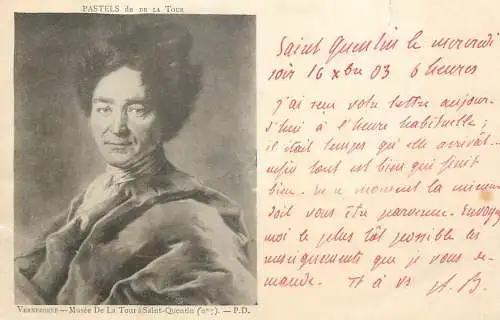 PASTELS de DE LA TOUR
Saint Quentin le mercredi
soir 16 xbre 03 6 heures
J'ai reçu votre lettre aujour-
d'hui à l'heure habituelle ;
il était temps qu'elle arrivât...
enfin tout est bien qui finit
bien. En ce moment la mienne
doit vous être parvenue. Envoyez
moi le plus tôt possible les
renseignements que je vous de-
mande. A. B.
VERNEZOBRE — MUSÉE DE LA TOUR à SAINT-QUENTIN (). — P.D.